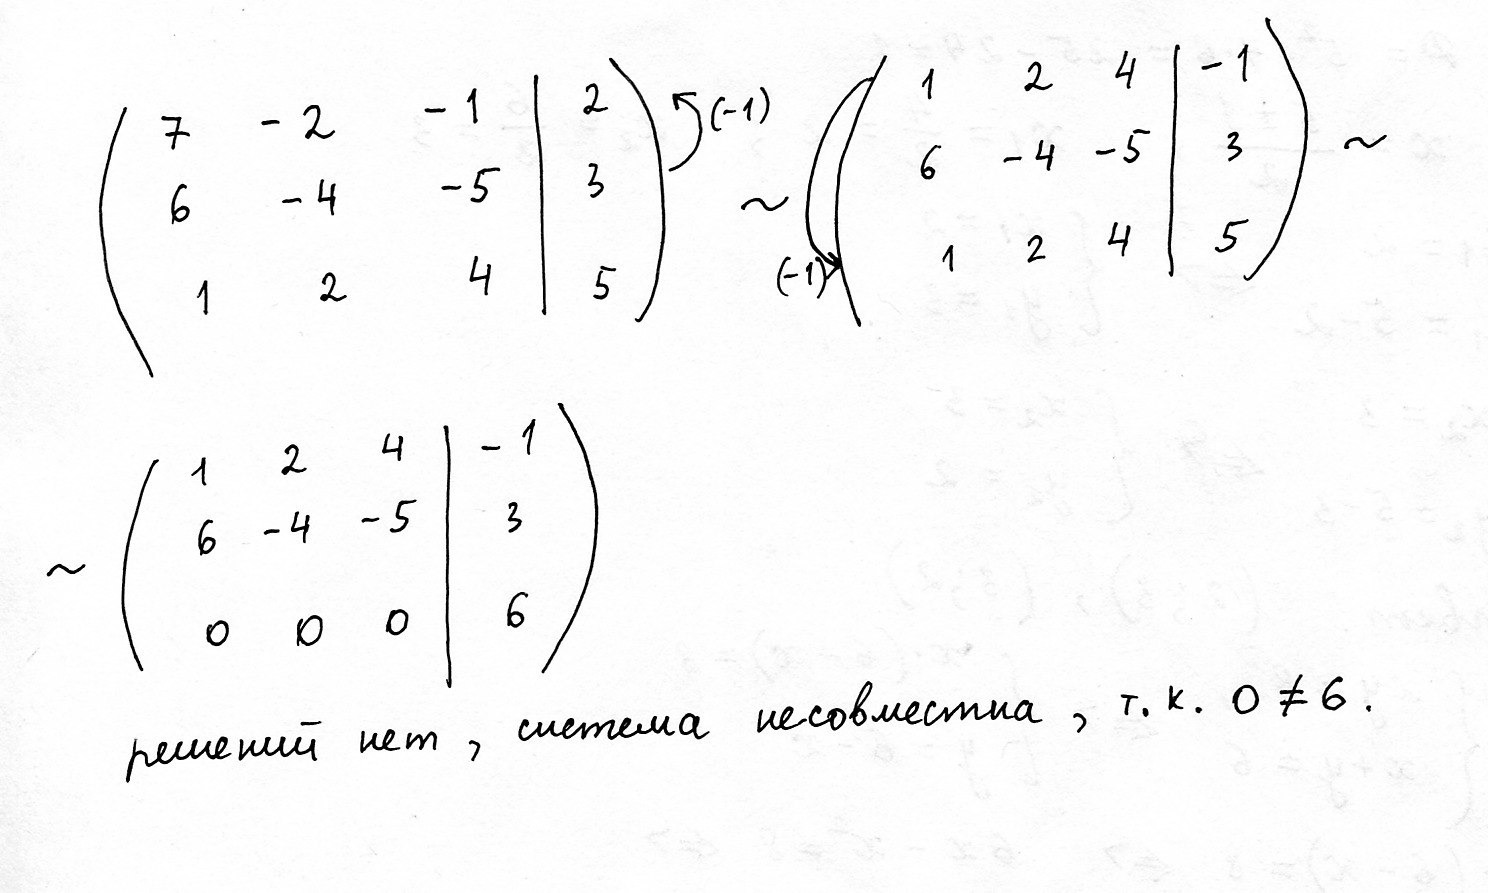 7 -2 -1 | 2 (-1) 1 2 4 | -1
6 -4 -5 | 3 ~ 6 -4 -5 | 3 ~
1 2 4 | 5 (-1) 1 2 4 | 5
1 2 4 | -1
~ 6 -4 -5 | 3
0 0 0 | 6
решений нет, система несовместна, т.к. 0 ≠ 6.